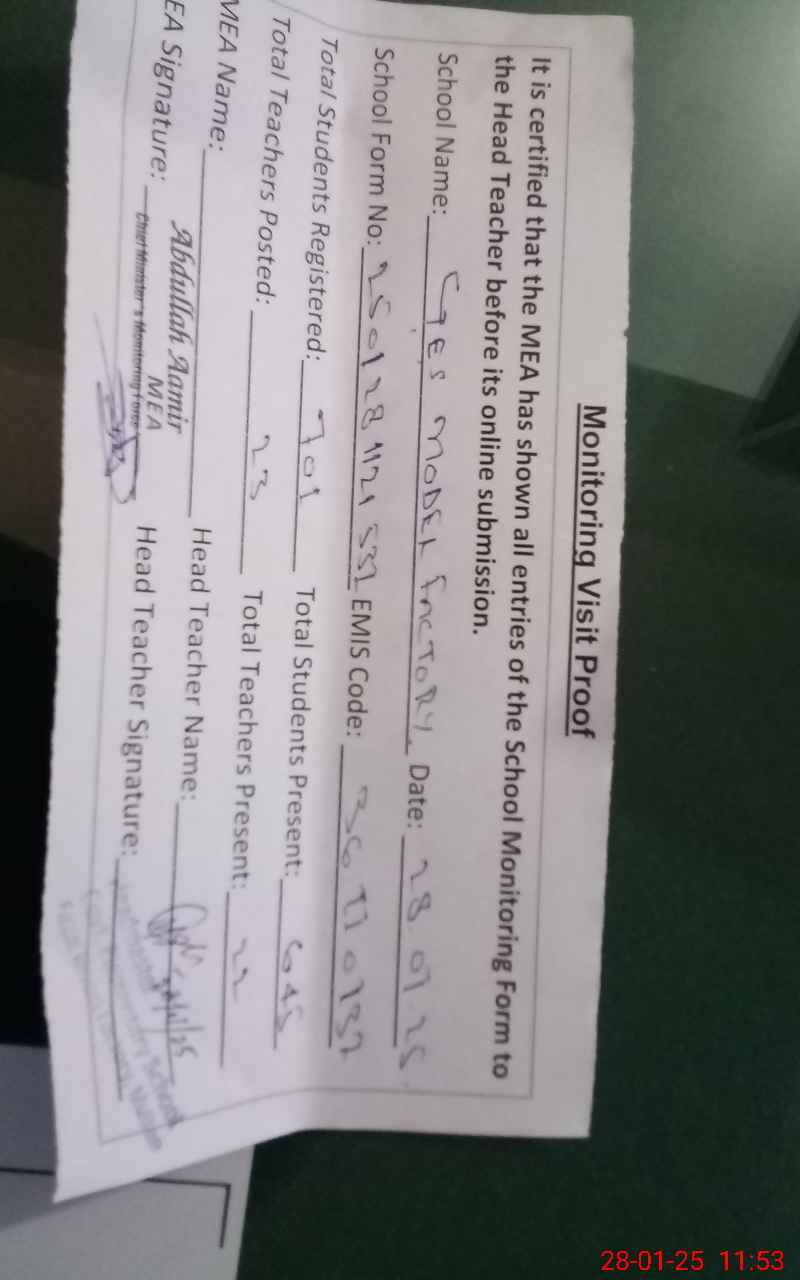 Monitoring Visit Proof
It is certified that the MEA has shown all entries of the School Monitoring Form to
the Head Teacher before its online submission.
School Name: GES MODEL FACTORY Date: 28 01 25
School Form No: 250128 1121 532 EMIS Code:
Total Students Registered: 701 Total Students Present: 645
Total Teachers Posted: 23 Total Teachers Present: 22
MEA Name: Abdullah Aamir Head Teacher Name:
MEA
EA Signature: Chief Minister's Monitoring Force Head Teacher Signature:
School
28-01-25 11:53